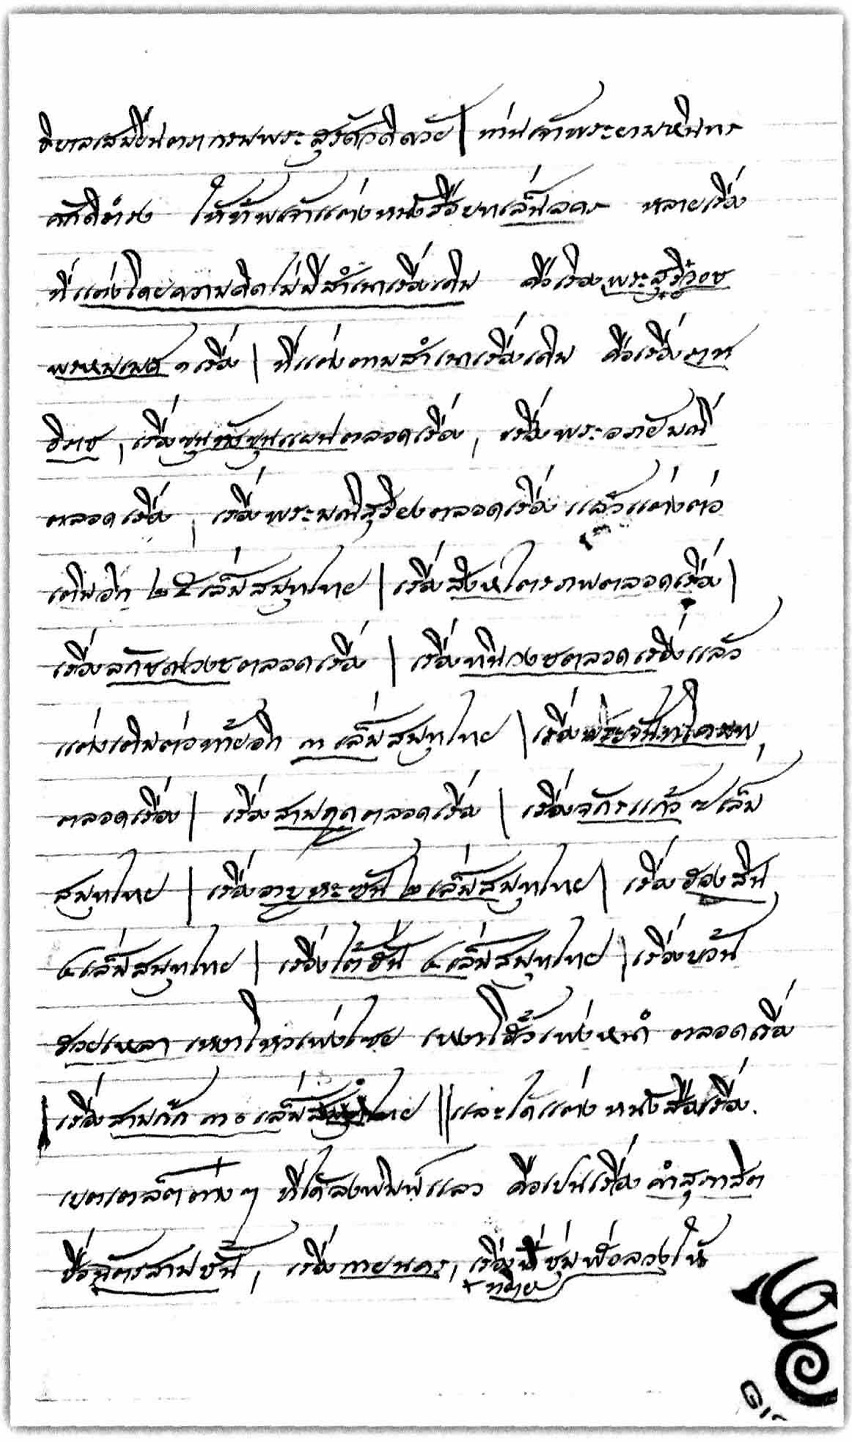 ธิบาลเสมียนตรากรมพระสุรัศวดีด้วย | ท่านเจ้าพระยามหินทร
ศักดิธำรง ให้ข้าพเจ้าแต่งหนังสือบทเล่นลคร หลายเรื่อง
ที่แต่งโดยความคิดไม่มีสำเนาเรื่องเดิม คือเรื่องพระสุริวงษ
พรหมเมศ ๑ เรื่อง | ที่แต่งตามสำเนาเรื่องเดิม คือเรื่องราช
ธิราช, เรื่องขุนช้างขุนแผนตลอดเรื่อง, เรื่องพระอภัยมณี
ตลอดเรื่อง, เรื่องพระมณีสุริยงตลอดเรื่อง แล้วแต่งต่อ
เติมอีก ๒๕ เล่มสมุทไทย | เรื่องสิงหไตรภพตลอดเรื่อง |
เรื่องลักษณวงษตลอดเรื่อง | เรื่องทินวงษตลอดเรื่องแล้ว
แต่งเติมต่อท้ายอีก ๓ เล่มสมุทไทย | เรื่องพระจันทโครพ,
ตลอดเรื่อง | เรื่องสามกุดตลอดเรื่อง | เรื่องจักรแก้ว ๙ เล่ม
สมุทไทย | เรื่อง ๒ เล่มสมุทไทย | เรื่องฮวงสิน
๔ เล่มสมุทไทย | เรื่องไต้ฮั่น ๔ เล่มสมุทไทย | เรื่องบ้วน
ฮวยเหลา ตลอดเรื่อง
| เรื่องสามก๊ก ๓๐ เล่มสมุทไทย || และได้แต่งหนังสือเรื่อง
เบตเตล็ตต่างๆ ที่ได้ลงพิมพ์แลว คือเปนเรื่อง คำสุภาสิต
ชื่อฉัตรสามชั้น, เรื่องกายนคร, เรื่อง